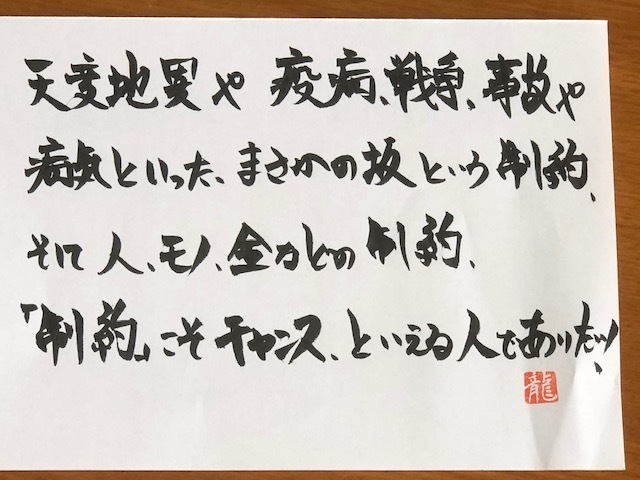 天変地異や 疫病、戦争、事故や
病気といった、まさかの坂という制約、
そして人、モノ、金などの制約、
「制約」こそチャンス、といえる人でありたい!
龍